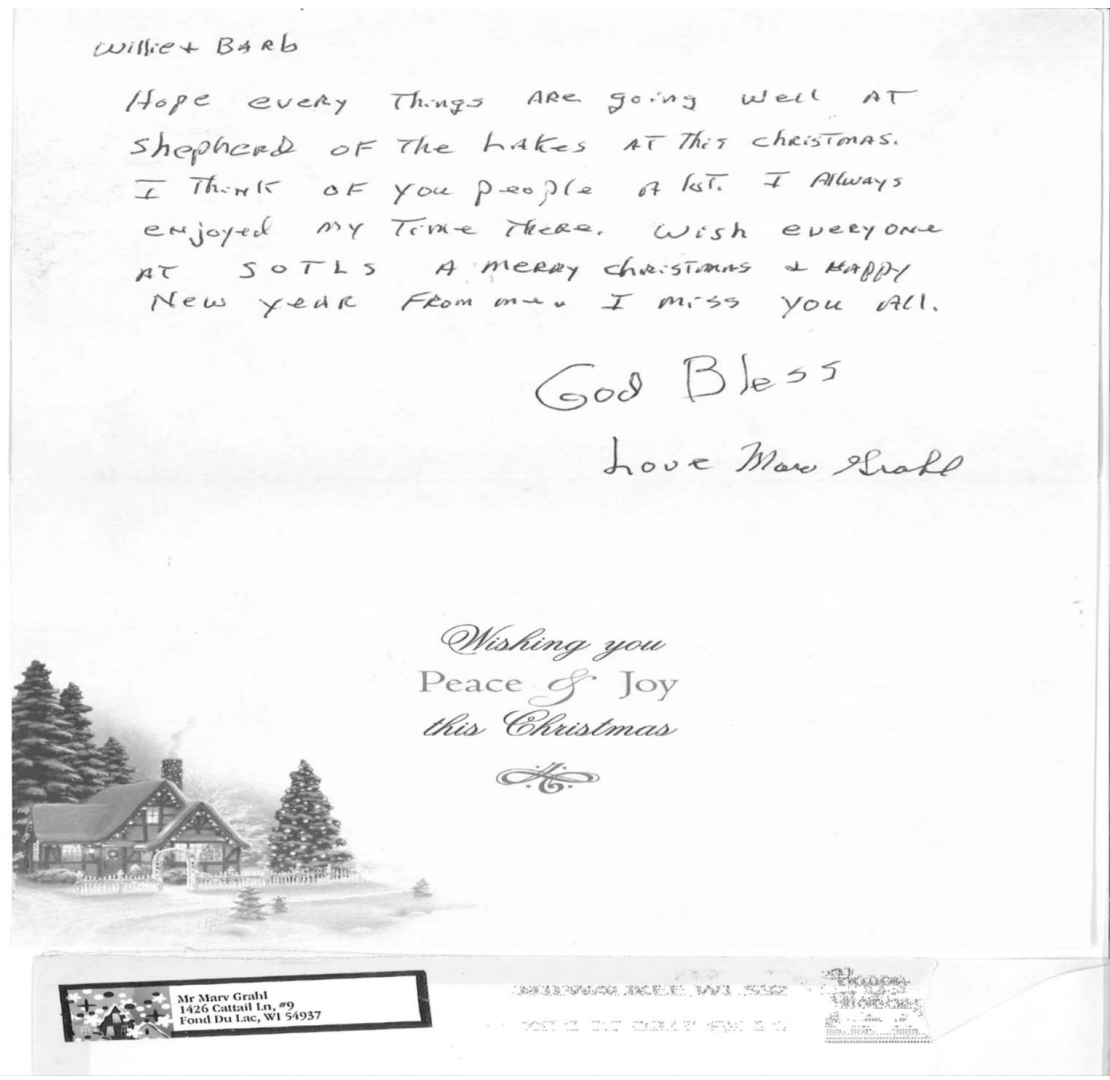 Willie + BARb
Hope every Things ARe going well AT
Shepherd OF The LAKes AT This christmas.
I Think OF you people A lot. I Allways
enjoyed my Time There. Wish everyone
AT SOTLS A merry christmas & HAppy
New year From me. I miss you All.
God Bless
Love Marv Grahl
Wishing you
Peace & Joy
this Christmas
Mr Marv Grahl
1426 Cattail Ln, #9
Fond Du Lac, WI 54937
MILWAUKEE WI 532